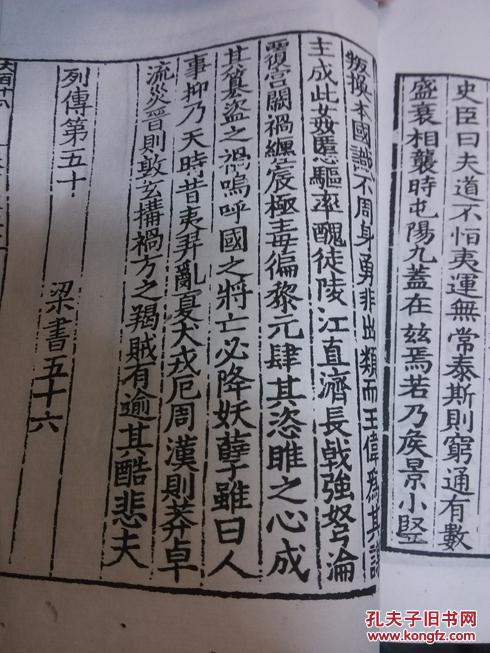 史臣曰夫道不恒夷運無常泰斯則窮通有數
盛衰相襲時屯陽九蓋在兹焉若乃矦景小竪
叛換本國識不周身勇非出類而王偉爲其謀
主成此姦慝驅率醜徒陵江直濟長戟強弩淪
覆宫闕禍纏宸極毒徧黎元肆其恣睢之心成
其簒盜之禍嗚呼國之將亡必降妖孽雖曰人
事抑乃天時昔夷羿亂夏犬戎厄周漢則莽卓
流災晉則敦玄搆禍方之羯賊有逾其酷悲夫
列傳第五十
梁書五十六
孔夫子旧书网
www.kongfz.com